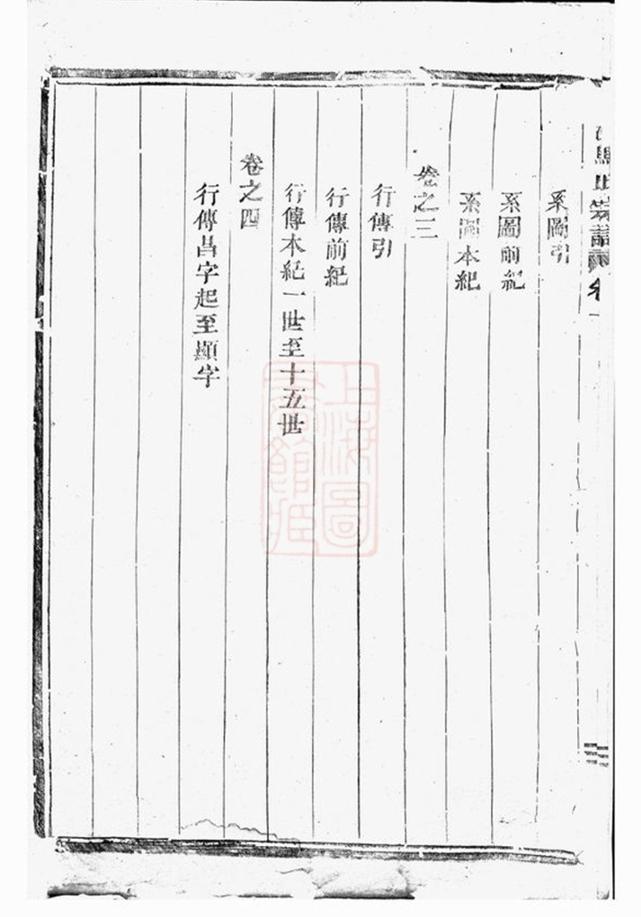 宗譜 卷一
系圖引
系圖前紀
系圖本紀
卷之三
行傳引
行傳前紀
行傳本紀一世至十五世
卷之四
行傳昌字起至顯字
上海圖
書館